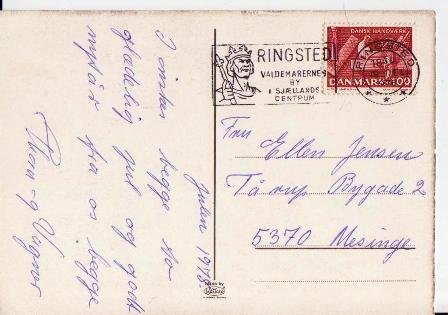 Julen 1978.
I ønskes begge to
glædelig jul og godt
nytår fra os begge
Thora og Vagner
RINGSTED
VALDEMARERNES
BY
I SJÆLLANDS
CENTRUM
DANSK HÅNDVÆRK
DANMARK
RINGSTED
Fru
Ellen Jensen
Tårup Bygade 2
5370 Mesinge